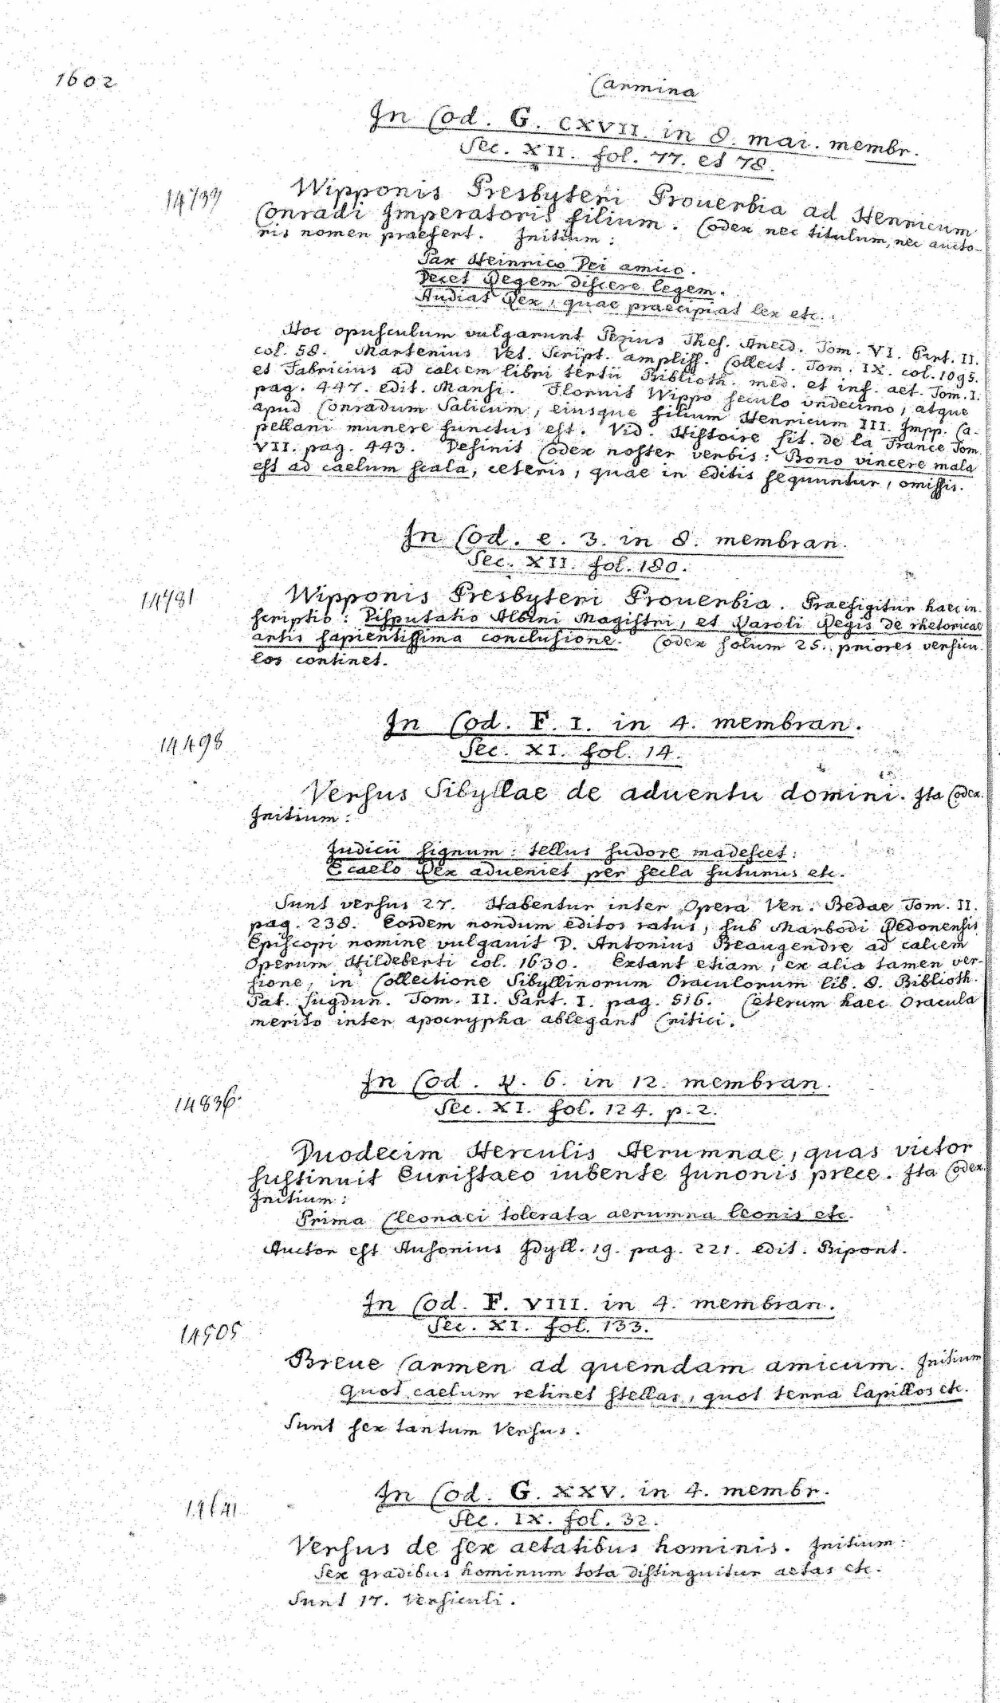 1602
Carmina
In Cod. G. CXVII. in 8. mai. membr.
Sec. XII. fol. 77. et 78.
14737
Wipponis Presbyteri Prouerbia ad Henricum
Conradi Imperatoris filium. Codex nec titulum, nec aucto-
ris nomen praefert. Initium:
Pax Heinrico Dei amico.
Decet Regem discere legem.
Audiat Rex, quae praecipiat lex etc.
Hoc opusculum vulgarunt Pezius Thes. Anecd. Tom. VI. Part. II.
col. 58. Martenius Vet. Script. ampliss. Collect. Tom. IX. col. 1095.
et Fabricius ad calcem libri tertii Biblioth. med. et inf. aet. Tom. I.
pag. 447. edit. Mansi. Floruit Wippo seculo vndecimo, atque
apud Conradum Salicum, eiusque filium Henricum III. Impp. Ca-
pellani munere functus est. Vid. Histoire lit. de la France Tom.
VII. pag. 443. Desinit Codex noster verbis: Bono vincere mala
est ad caelum scala, ceteris, quae in editis sequuntur, omissis.
In Cod. e. 3. in 8. membran.
Sec. XII. fol. 180.
14481
Wipponis Presbyteri Prouerbia. Praefigitur haec in-
scriptio: Disputatio Albini Magistri, et Karoli Regis de rhetoricae
artis sapientissima conclusione. Codex solum 25. priores versicu-
los continet.
In Cod. F. I. in 4. membran.
Sec. XI. fol. 14.
14498
Versus Sibyllae de aduentu domini. Ita Codex.
Initium:
Judicii signum: tellus sudore madescet:
E caelo Rex adueniet per secla futurus etc.
Sunt versus 27. Habentur inter Opera Ven. Bedae Tom. II.
pag. 238. Eosdem nondum editos ratus, sub Marbodi Redonensis
Episcopi nomine vulgauit D. Antonius Beaugendre ad calcem
Operum Hildeberti col. 1630. Extant etiam, ex alia tamen ver-
sione, in Collectione Sibyllinorum Oraculorum lib. 8. Biblioth.
Pat. Lugdun. Tom. II. Part. I. pag. 516. Ceterum haec Oracula
merito inter apocrypha ablegant Critici.
In Cod. 6. in 12. membran.
Sec. XI. fol. 124. p. 2.
14836
Duodecim Herculis Aerumnae, quas victor
sustinuit Euristaeo iubente Junonis prece. Ita Codex.
Initium:
Prima Cleonaei tolerata aerumna leonis etc.
Auctor est Ausonius Idyll. 19. pag. 221. edit. Bipont.
In Cod. F. VIII. in 4. membran.
Sec. XI. fol. 133.
14505
Breue Carmen ad quemdam amicum. Initium
Quot caelum retinet stellas, quot terra lapillos etc.
Sunt sex tantum Versus.
In Cod. G. XXV. in 4. membr.
Sec. IX. fol. 32.
14641
Versus de sex aetatibus hominis. Initium:
Sex gradibus hominum tota distinguitur aetas etc.
Sunt 17. Versiculi.